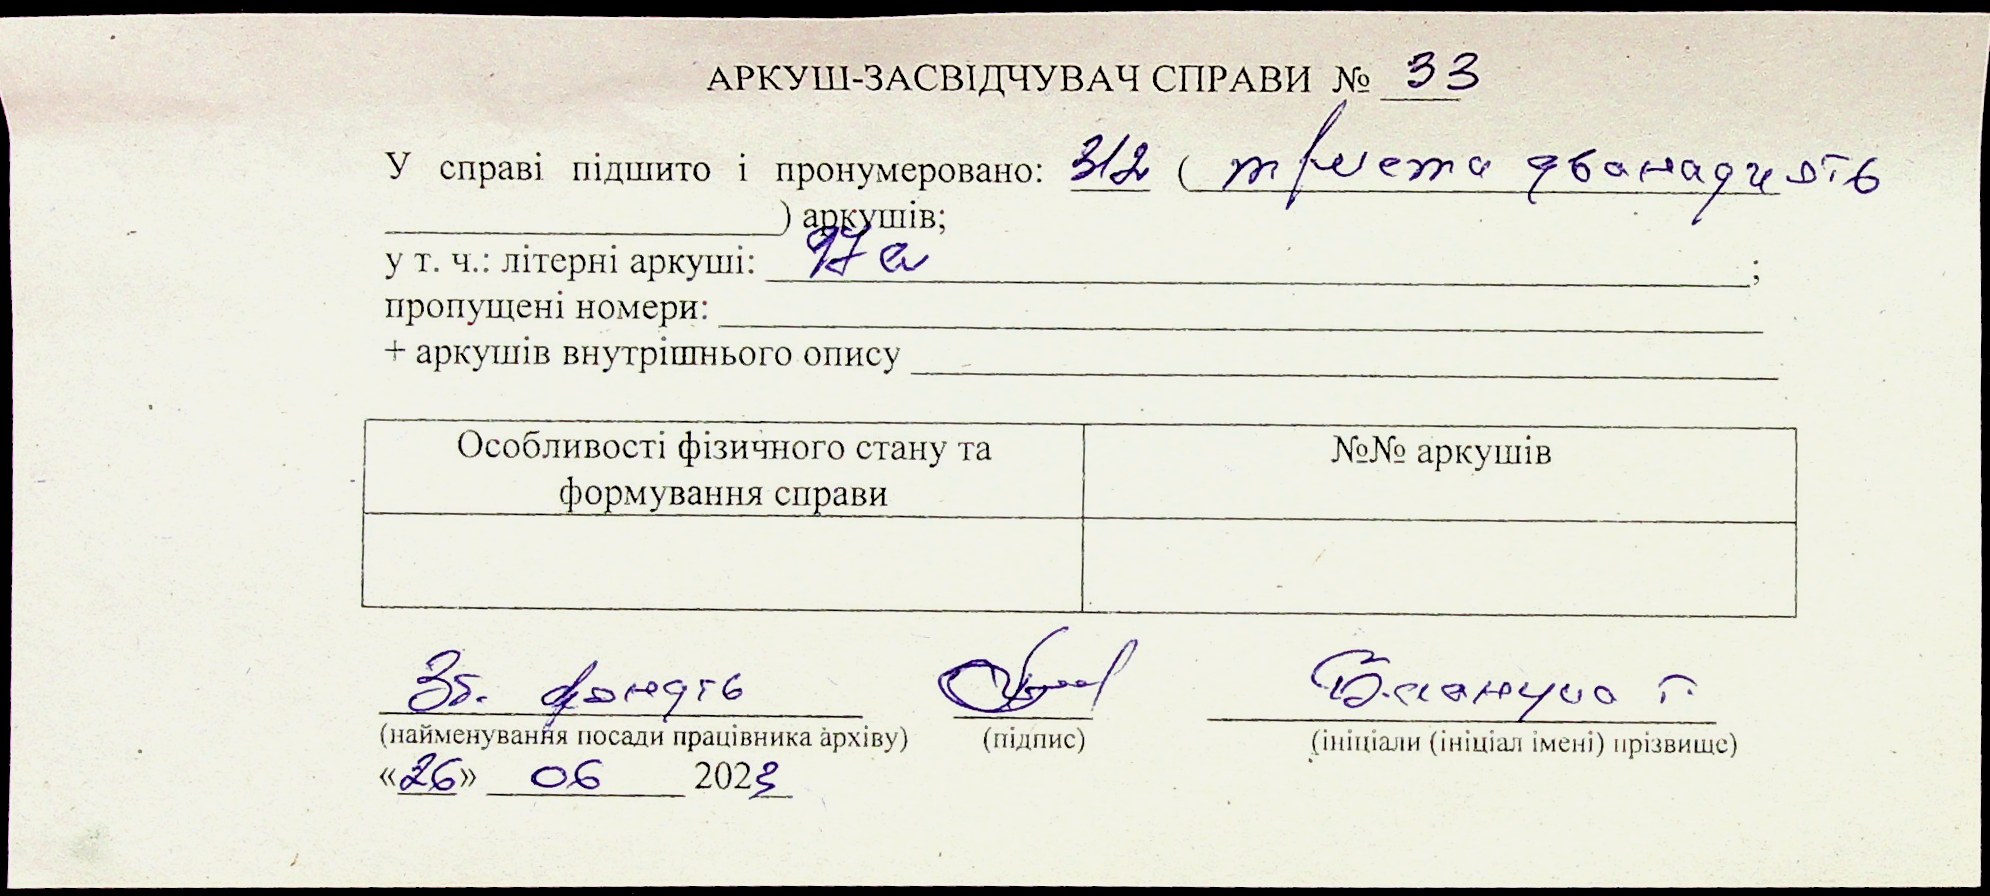 АРКУШ-ЗАСВІДЧУВАЧ СПРАВИ № 33
У справі підшито і пронумеровано: 312 ( триста дванадцять
) аркушів;
у т. ч.: літерні аркуші: 97а ;
пропущені номери:
+ аркушів внутрішнього опису
Особливості фізичного стану та
формування справи
№№ аркушів
Зб. фондів
(найменування посади працівника архіву) (підпис) (ініціали (ініціал імені) прізвище)
«26» 06 2023